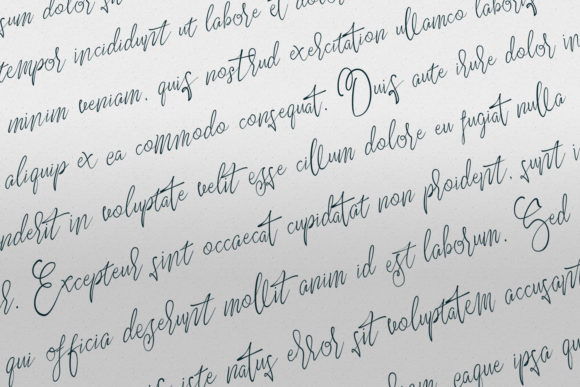 sum dolor si
tempor incididunt ut labore et dolor
minim veniam, quis nostrud exercitation ullamco laboris
aliquip ex ea commodo consequat. Duis aute irure dolor in
nderit in voluptate velit esse cillum dolore eu fugiat nulla
r. Excepteur sint occaecat cupidatat non proident, sunt in
qui officia deserunt mollit anim id est laborum. Sed
iste natus error sit voluptatem accusant
eaque ipsa qu